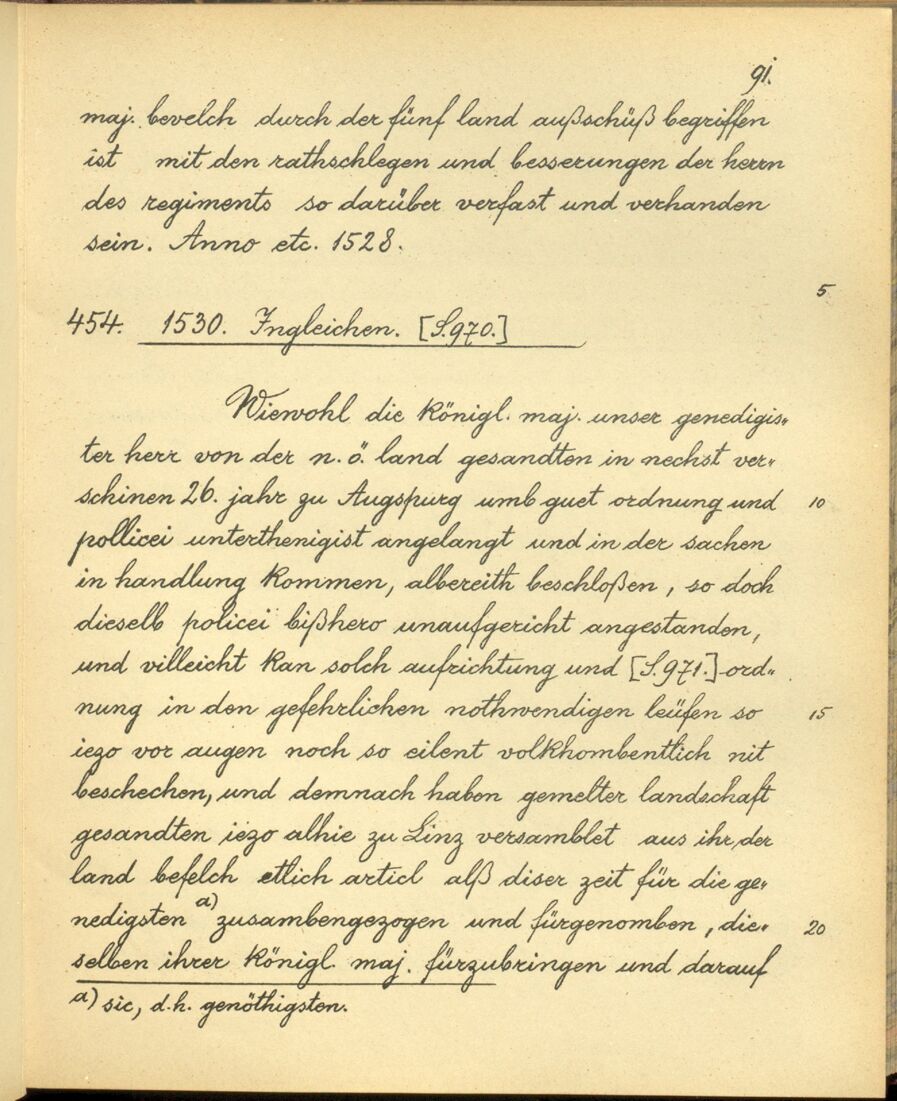 91.
maj. bevelch durch der fünf land außschüß begriffen
ist mit den rathschlegen und besserungen der herrn
des regiments so darüber verfast und verhanden
sein. Anno etc. 1528.
5
454. 1530. Ingleichen. [S.970.]
Wiewohl die königl. maj. unser genedigis-
ter herr von der n. ö. land gesandten in nechst ver-
schinen 26. jahr zu Augspurg umb guet ordnung und 10
pollicei unterthenigist angelangt und in der sachen
in handlung kommen, albereith beschloßen, so doch
dieselb policei bißhero unaufgericht angestanden,
und villeicht kan solch aufrichtung und [S.971.] ord-
nung in den gefehrlichen nothwendigen leüfen so 15
iezo vor augen noch so eilent volkhombentlich nit
beschechen, und demnach haben gemelter landschaft
gesandten iezo alhie zu Linz versamblet aus ihr der
land befelch etlich articl alß diser zeit für die ge-
nedigsten a) zusambengezogen und fürgenomben, die- 20
selben ihrer königl. maj. fürzubringen und darauf
a) sic, d.h. genöthigsten.